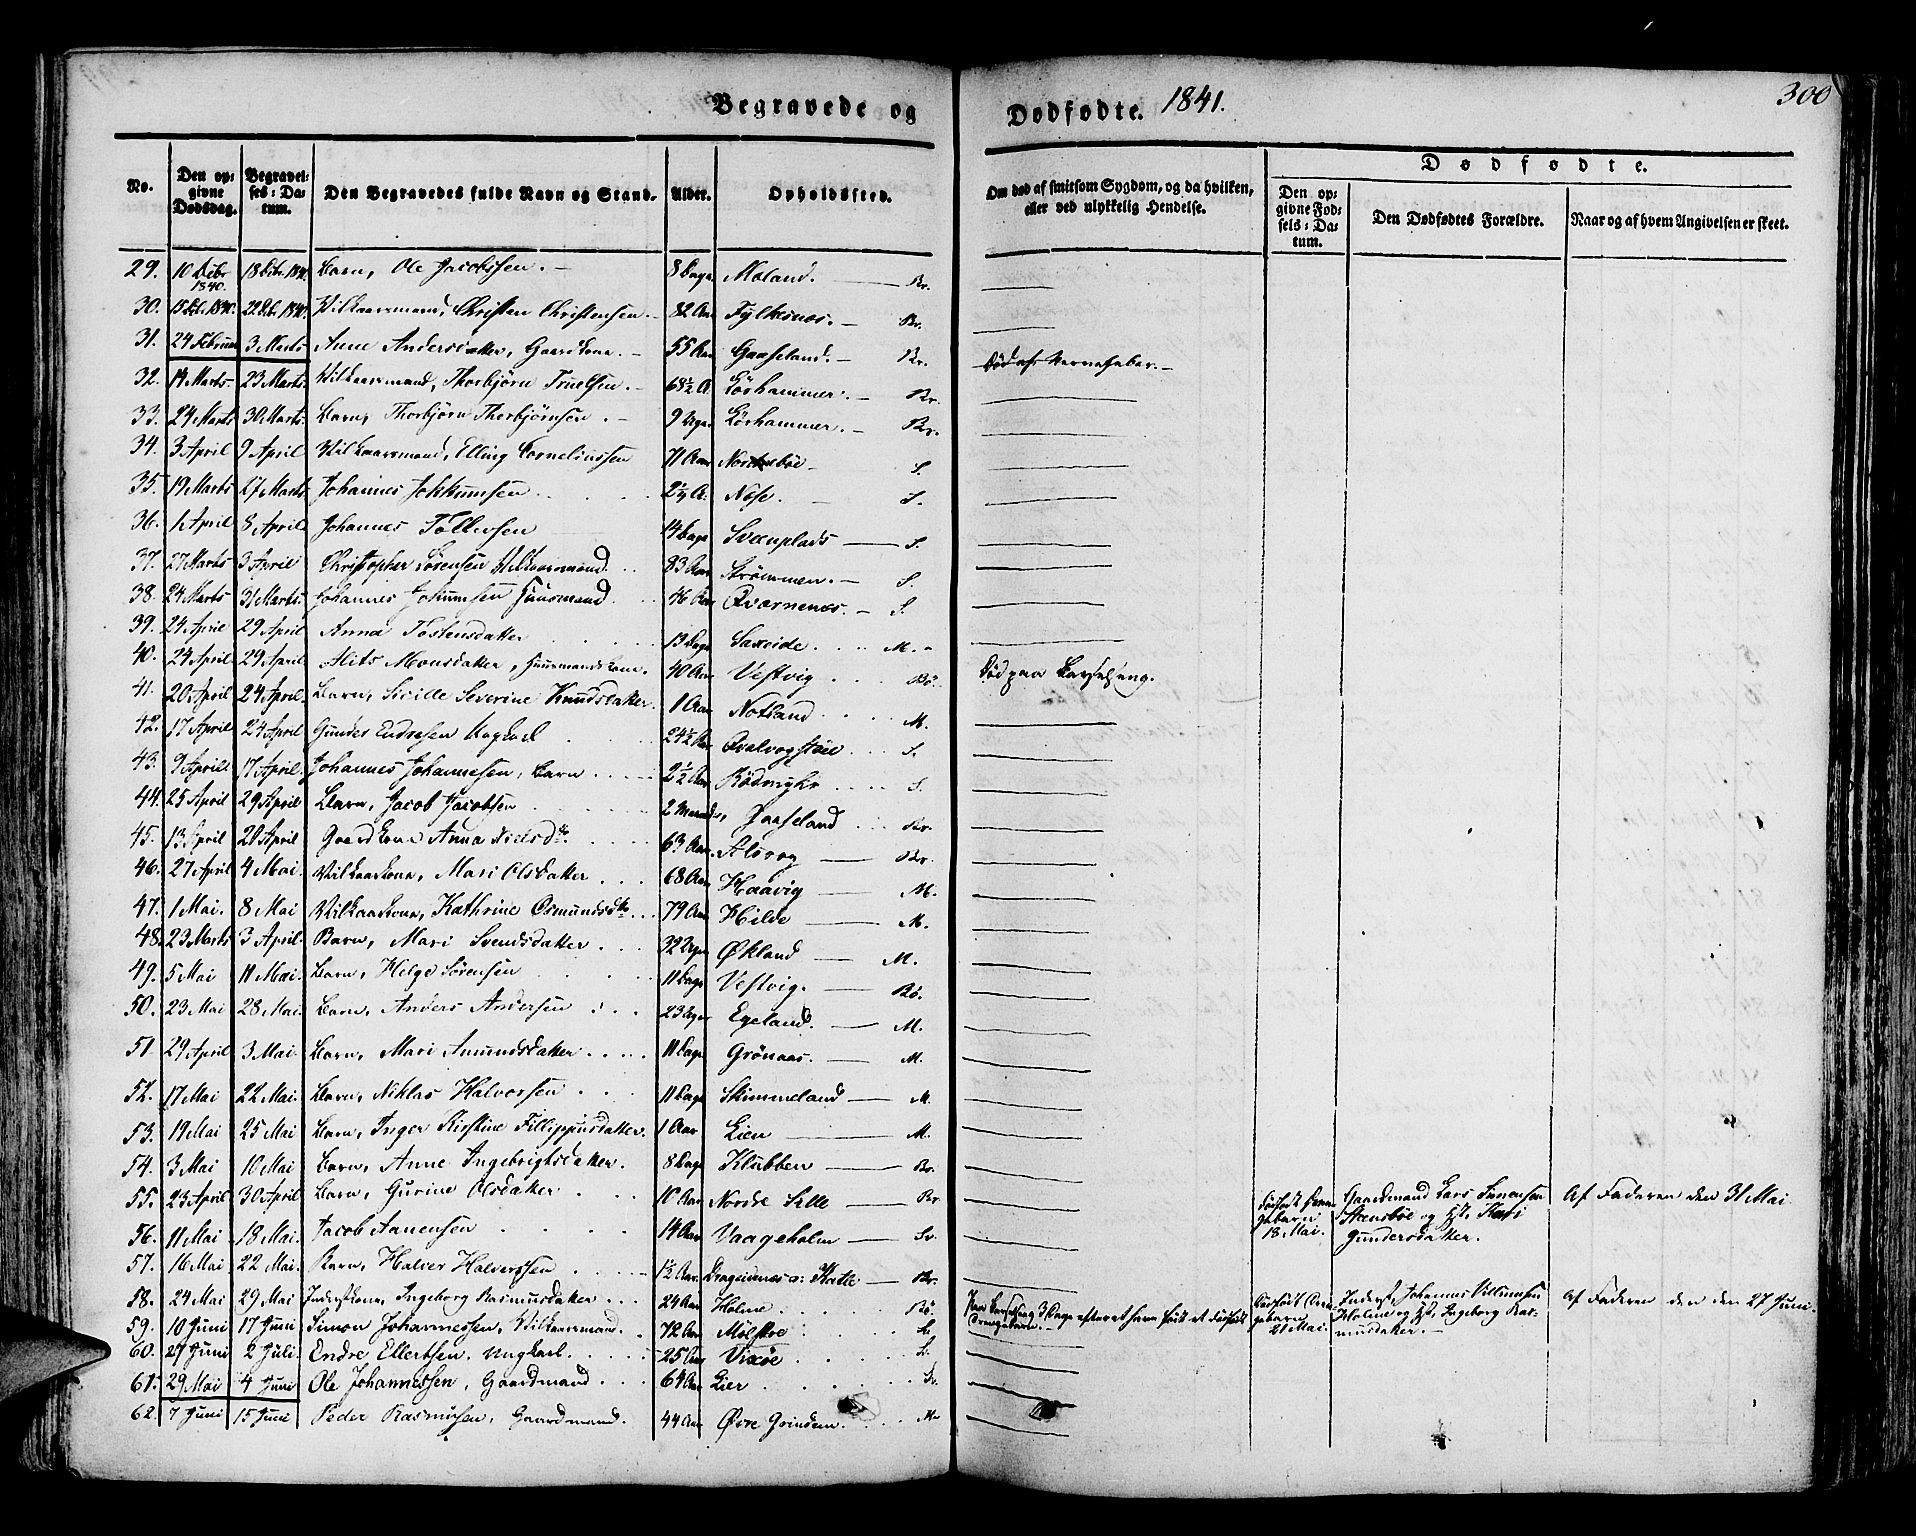 Begravede og Dødfødte. 1841. 300
No. Den opgivne Dødsdag. Begravelses-Datum. Den Begravedes fulde Navn og Stand. Alder. Opholdssted. Om død af smitsom Sygdom, og da hvilken, eller ved ulykkelig Hendelse. Dødfødte. Den opgivne Fødsels-Datum. Den Dødfødtes Forældre. Naar og af hvem Angivelsen er skeet.
29. 10 Debr 1840. 18 Debr. 1840. Barn, Ole Jacobssen. 8 Dage Moland. Br.
30. 15 Debr. 1840. 22 Debr. 1840. Vilkaarsmand, Christen Christensen. 82 Aar Fylkesnæs. Br.
31. 24 Februar 3 Marts Anne Andersdatter, Gaardkone. 55 Aar Gaaseland. Br. Død af Nervefeber.
32. 14 Marts 23 Marts Vilkaarsmand, Thorbjørn Truelsen. 68½ A. Lørhammer. Br.
33. 24 Marts 30 Marts. Barn, Thorbjørn Thorbjørnsen. 9 Uger Lørhammer. Br.
34. 3 April 9 April Vilkaarsmand, Elling Corneliussen 71 Aar S.
35. 19 Marts 27 Marts Johannes Jokkumsen 2¼ A. Nose. S.
36. 1 April 8 April Johannes Tollevsen 14 Dage Sveenplads S.
37. 27 Marts 3 April Christopher Sørensen Vilkaarsmand. 83 Aar Strømmen. S.
38. 24 Marts 31 Marts. Johannes Jokumsen Huusmand. 46 Aar Qvarnenæs. S.
39. 24 April 29 April Anna Tostensdatter 13 Dage Saxeide. M.
40. 24 April 29 April Alits Monsdatter, Huusmandskone. 40 Aar Vestvig Bø. Død paa Barselseng.
41. 20 April 24 April. Barn, Sicille Severine Knudsdatter. 1 Aar Notland M.
42. 17 April 24 April Gunder Endresen Ungkarl 24½ Aar Qvalvogstøe S.
43. 9 April 17 April. Johannes Johannesen, Barn 2½ Aar S.
44. 25 April 29 April Barn, Jacob Jacobsen 2 Maaneder, Gaaseland Br.
45. 13 April 20 April Gaardkone Anna Nielsdr. 63 Aar. Alsvog Br.
46. 27 April 4 Mai. Vilkaarskone, Mari Olsdatter 68 Aar Haavig M.
47. 1 Mai. 8 Mai Vilkaarskone, Kathrine Osmundsdtr 79 Aar Hilde M.
48. 23 Marts 3 April. Barn, Mari Svendsdatter 32 Uger Økland M.
49. 5 Mai 11 Mai. Barn, Helge Sørensen 11 Dage Vestvig. Bø.
50. 23 Mai 28 Mai. Barn, Anders Andersen 23 Uger Egeland. M.
51 29 April 3 Mai. Barn, Mari Amundsdatter 11 Dage Grønaas. M.
52. 17 Mai 22 Mai. Barn, Niklas Halvorsen 11 Dage Skimmeland M.
53. 19 Mai 25 Mai Barn, Inger Kirstine Fillippusdatter. 1 Aar Lien M.
54. 3 Mai 10 Mai Barn, Anne Ingebrigtsdatter. 8 Dage Klubben Br.
55. 23 April 30 April Barn, Gurine Olsdatter 10 Aar Nordre Selle Br. Dødfødt 18 Mai. Gaardmand Lars Simensen Steensbøe og H. Kari Gundersdatter. Af Faderen den 31 Mai
56. 11 Mai 18 Mai. Jacob Aanensen 14 Aar Vaageholm Sv.
57. 16 Mai 22 Mai. Barn, Halver Halverssen 1½ Aar. Drageidenæs Br.
58. 24 Mai 29 Mai Inderstkone, Ingeborg Rasmusdatter 24 Aar Holme Bø. Paa Barselseng 3 Dage efteråt have født et dødfødt Drengebarn. 21 Mai. Inderst, Johannes Villumsen Holme og H. Ingeborg Rasmusdatter. Af Faderen den den 27 Juni.
59. 10 Juni 17 Juni Simon Johannessen, Vilkaarsmand. 72 Aar Mølstre
60. 27 Juni 2 Juli. Endre Ellertsen, Ungkarl. 25 Aar Vixøe
61. 29 Mai 4 Juni Ole Johannessen, Gaardmand 64 Aar Lier Sv.
62. 7 Juni 15 Juni Peder Rasmusen, Gaardmand. 44 Aar Øvre Grindem M.